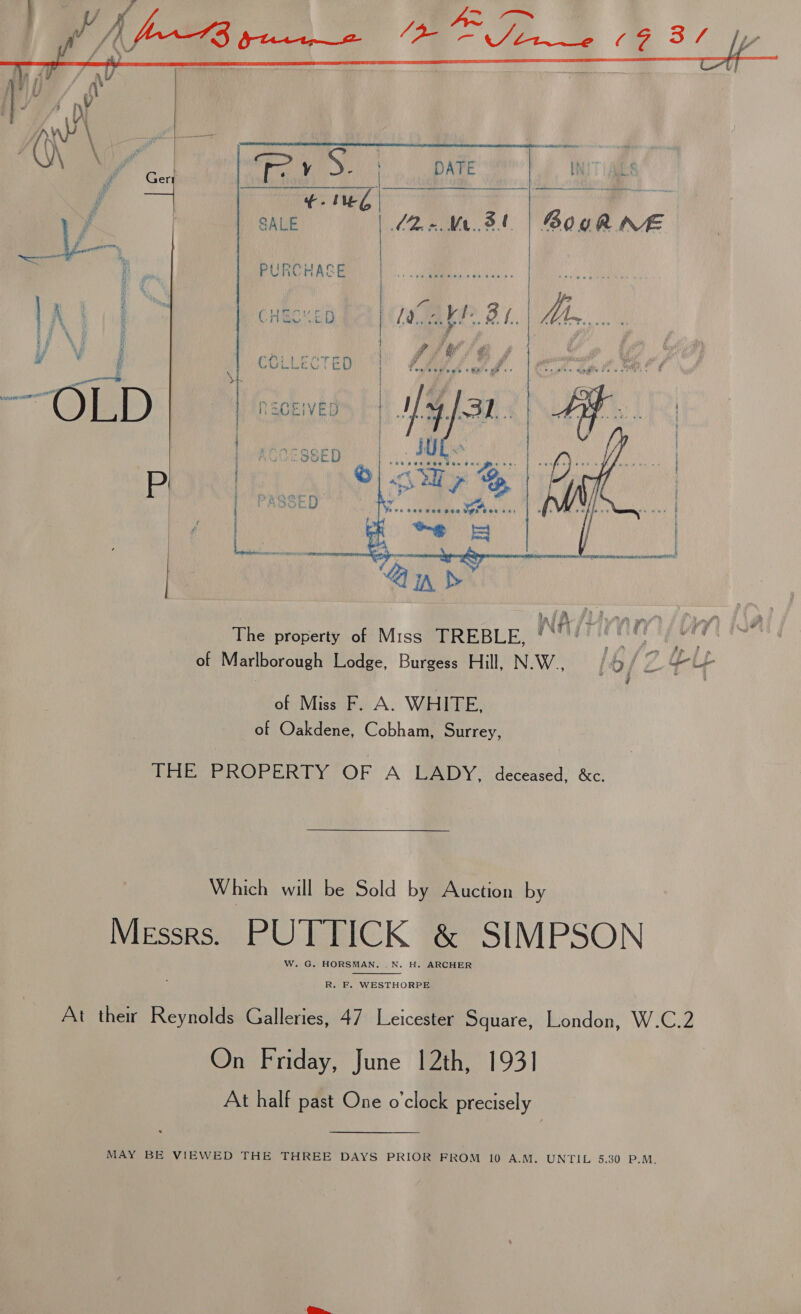 Bourne 12 June 1931
Ger
DATE INITIALS
SALE BOURNE
PURCHASE
CHECKED
COLLECTED
OLD
RECEIVED 1/7/31
ACCESSED JUL
P
PASSED
The property of Miss TREBLE,
of Marlborough Lodge, Burgess Hill, N.W.,
of Miss F. A. WHITE,
of Oakdene, Cobham, Surrey,
THE PROPERTY OF A LADY, deceased, &c.
Which will be Sold by Auction by
Messrs. PUTTICK & SIMPSON
W. G. HORSMAN. N. H. ARCHER
R. F. WESTHORPE
At their Reynolds Galleries, 47 Leicester Square, London, W.C.2
On Friday, June 12th, 1931
At half past One o'clock precisely
MAY BE VIEWED THE THREE DAYS PRIOR FROM 10 A.M. UNTIL 5.30 P.M.